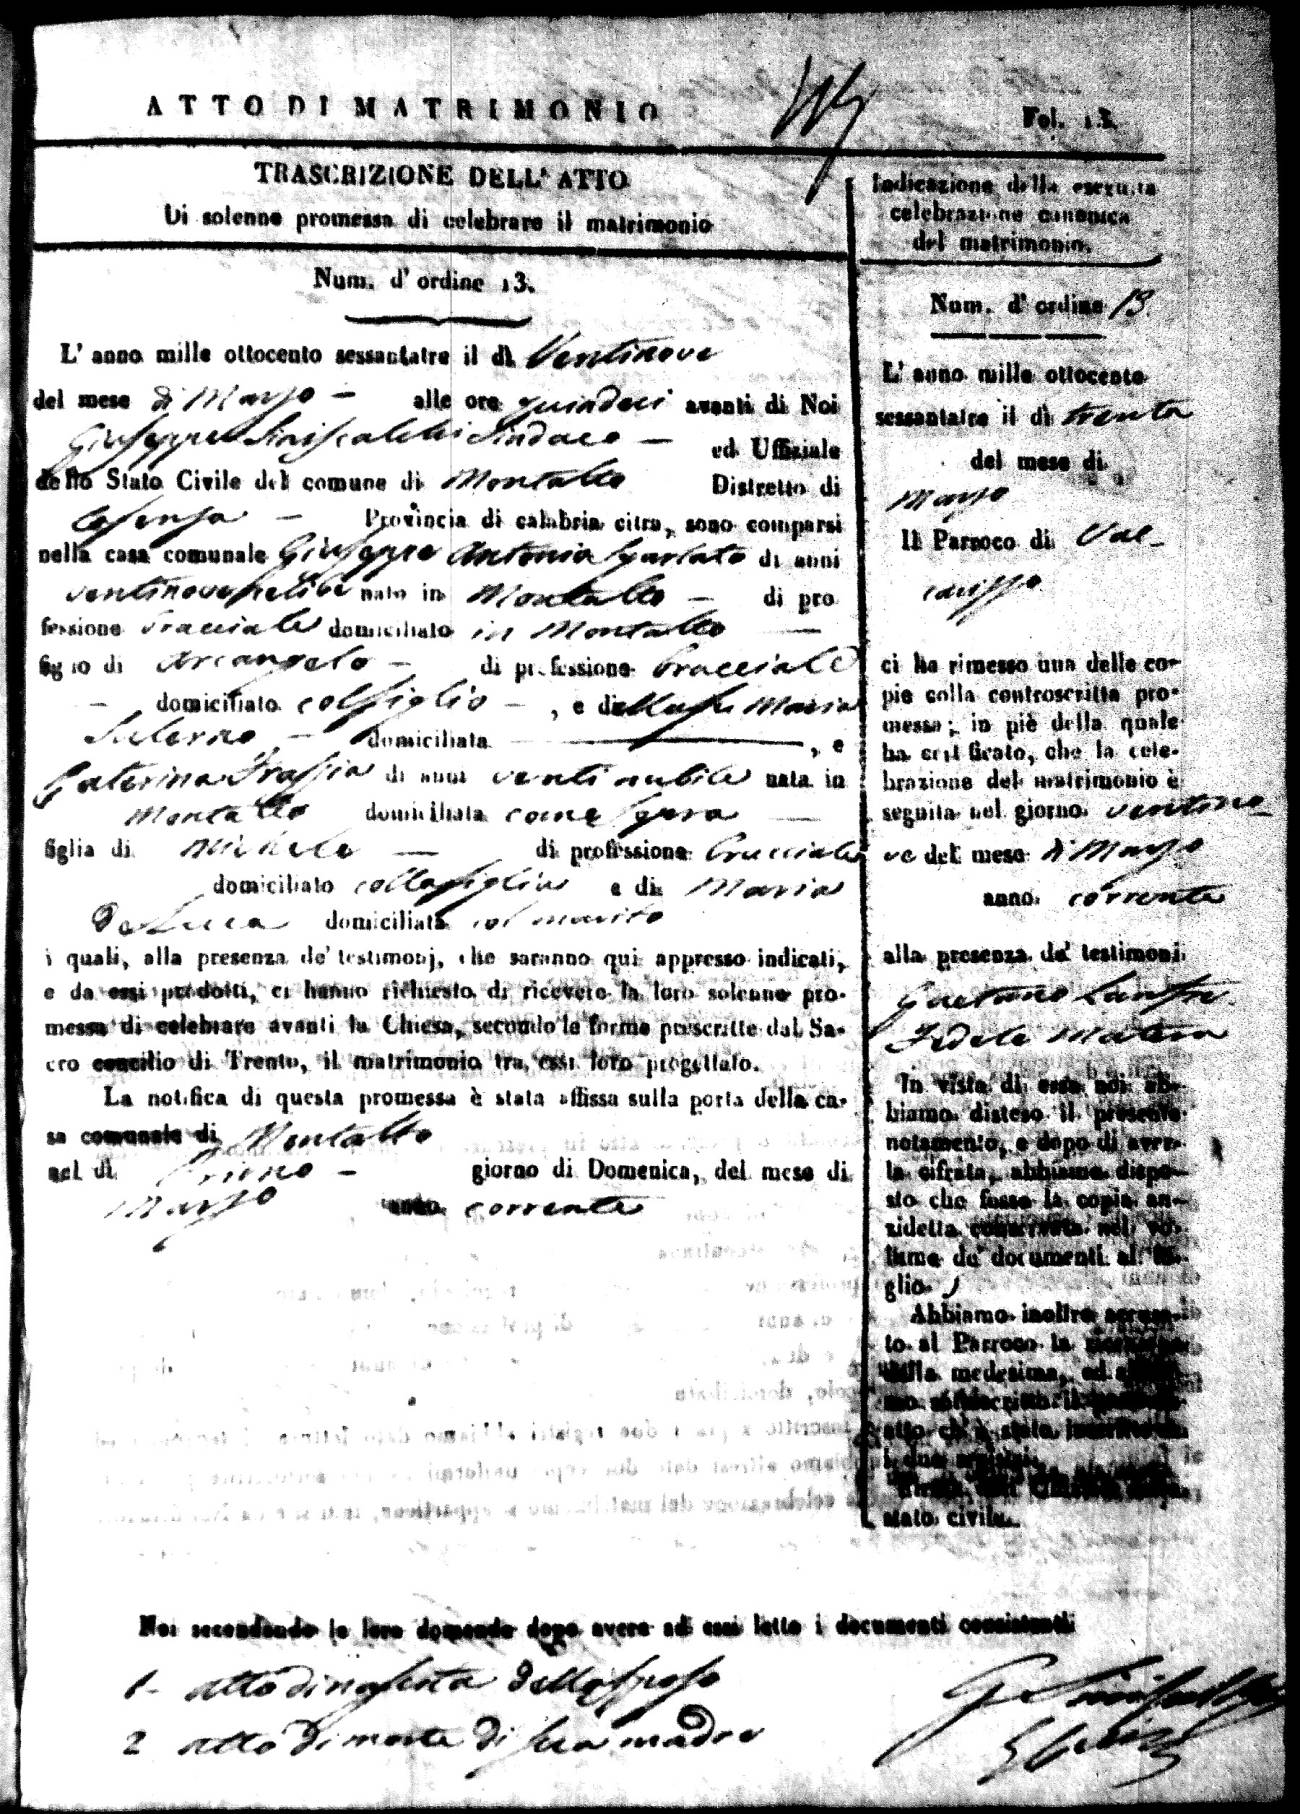 ATTO DI MATRIMONIO
Fol. 13.
TRASCRIZIONE DELL' ATTO
Di solenne promessa di celebrare il matrimonio
Num. d' ordine 13.
L' anno mille ottocento sessantatre il dì Ventinove
del mese di Marzo — alle ore quindeci avanti di Noi
Giuseppe Siniscalchi Sindaco — ed Uffiziale
dello Stato Civile del comune di Montalto Distretto di
Cosenza — Provincia di calabria citra, sono comparsi
nella casa comunale Giuseppe Antonio di anni
ventinove celibe nato in Montalto — di pro
fessione bracciale domiciliato in Montalto —
figlio di Arcangelo — di professione bracciale
— domiciliato col figlio —, e della fu Maria
Salerno — domiciliata —, e
Caterina di anni venti nubile nata in
Montalto domiciliata come sopra —
figlia di Michele — di professione bracciale
domiciliato colla figlia e di Maria
de Luca domiciliata col marito
i quali, alla presenza de' testimonj, che saranno qui appresso indicati,
e da essi prodotti, ci hanno richiesto di ricevere la loro solenne pro-
messa di celebrare avanti la Chiesa, secondo le forme prescritte dal Sa-
cro concilio di Trento, il matrimonio tra essi loro progettato.
La notifica di questa promessa è stata affissa sulla porta della ca-
sa comunale di Montalto
nel dì Primo — giorno di Domenica, del mese di
Marzo anno corrente
Indicazione della eseguita
celebrazione canonica
del matrimonio.
Num. d' ordine 13.
L' anno mille ottocento
sessantatre il dì trenta
del mese di
Marzo
Il Parroco di Val-

ci ha rimesso una delle co-
pie colla controscritta pro-
messa; in piè della quale
ha certificato, che la cele-
brazione del matrimonio è
seguita nel giorno ventino
ve del mese di Marzo
anno corrente
alla presenza de' testimoni
Gaetano
Fedele Matera
In vista di essa noi ab-
biamo disteso il presente
notamento, e dopo di aver-
la cifrata, abbiamo dispo-
sto che fosse la copia an-
zidetta conservata nel vo-
lume de' documenti al fo-
glio
Abbiamo inoltre accusa-
to al Parroco la
della medesima, ed abbia-
mo sottoscritto il presente
atto ch' è stato inscritto su
i due registri.
stato civile.
Noi secondando le loro domande dopo avere ad essi letto i documenti consistenti
1- atto di nascita dello sposo
2 atto di morte di sua madre